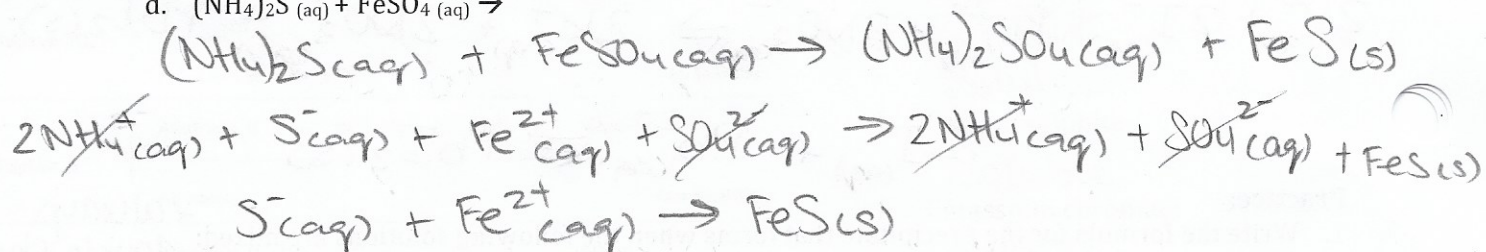 d. (NH4)2S (aq) + FeSO4 (aq) →
(NH4)2S(aq) + FeSO4(aq) → (NH4)2SO4(aq) + FeS(s)
2NH4+(aq) + S-(aq) + Fe2+(aq) + SO42-(aq) → 2NH4+(aq) + SO42-(aq) + FeS(s)
S-(aq) + Fe2+(aq) → FeS(s)